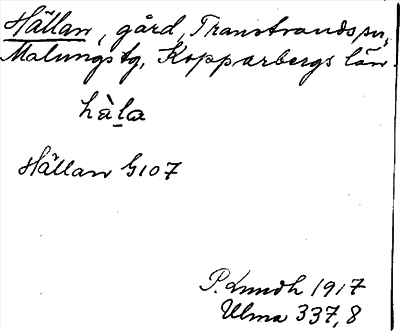 Hällan, gård, Transtrands sn,
Malungs tg, Kopparbergs län.
hàl̠a
Hällan G107
P. Lundh 1917
Ulma 337,8